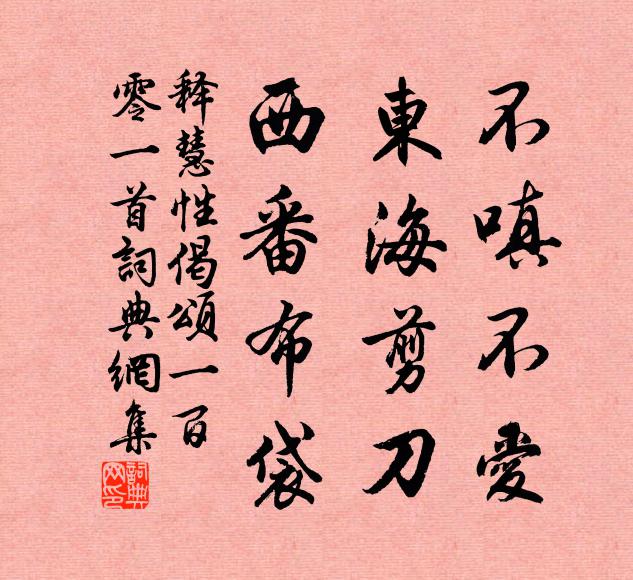 不嗔不愛
東海剪刀
西番布袋
释慧性偈頌一百
零一首詞典網集
詞典
网印